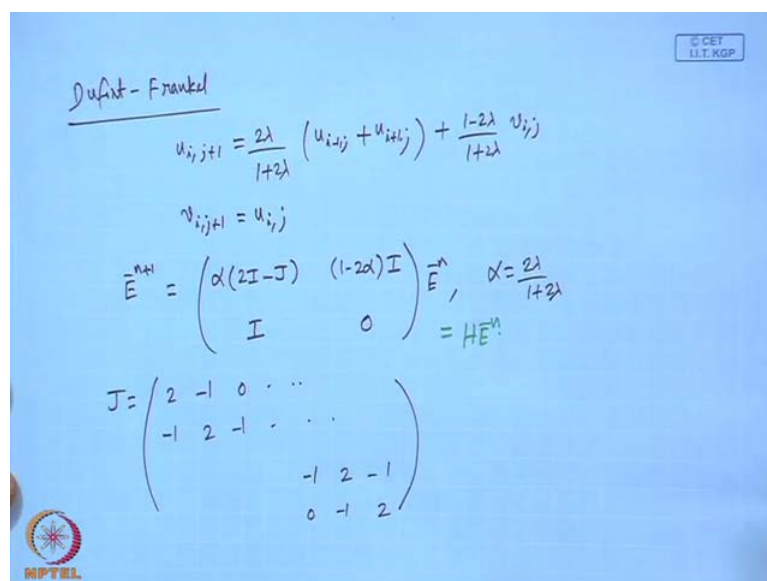 © CET
I.I.T. KGP
Dufort-Frankel
u_{i,j+1} = \frac{2λ}{1+2λ} (u_{i-1,j} + u_{i+1,j}) + \frac{1-2λ}{1+2λ} v_{i,j}
v_{i,j+1} = u_{i,j}
\bar{E}^{n+1} = \begin{pmatrix} α(2I-J) & (1-2α)I \\ I & 0 \end{pmatrix} \bar{E}^{n}, α = \frac{2λ}{1+2λ}
= H\bar{E}^{n}.
J = \begin{pmatrix} 2 & -1 & 0 & \cdot & \cdot\cdot \\ -1 & 2 & -1 & \cdot & \cdot & \cdot \\ & & & -1 & 2 & -1 \\ & & & 0 & -1 & 2 \end{pmatrix}
NPTEL